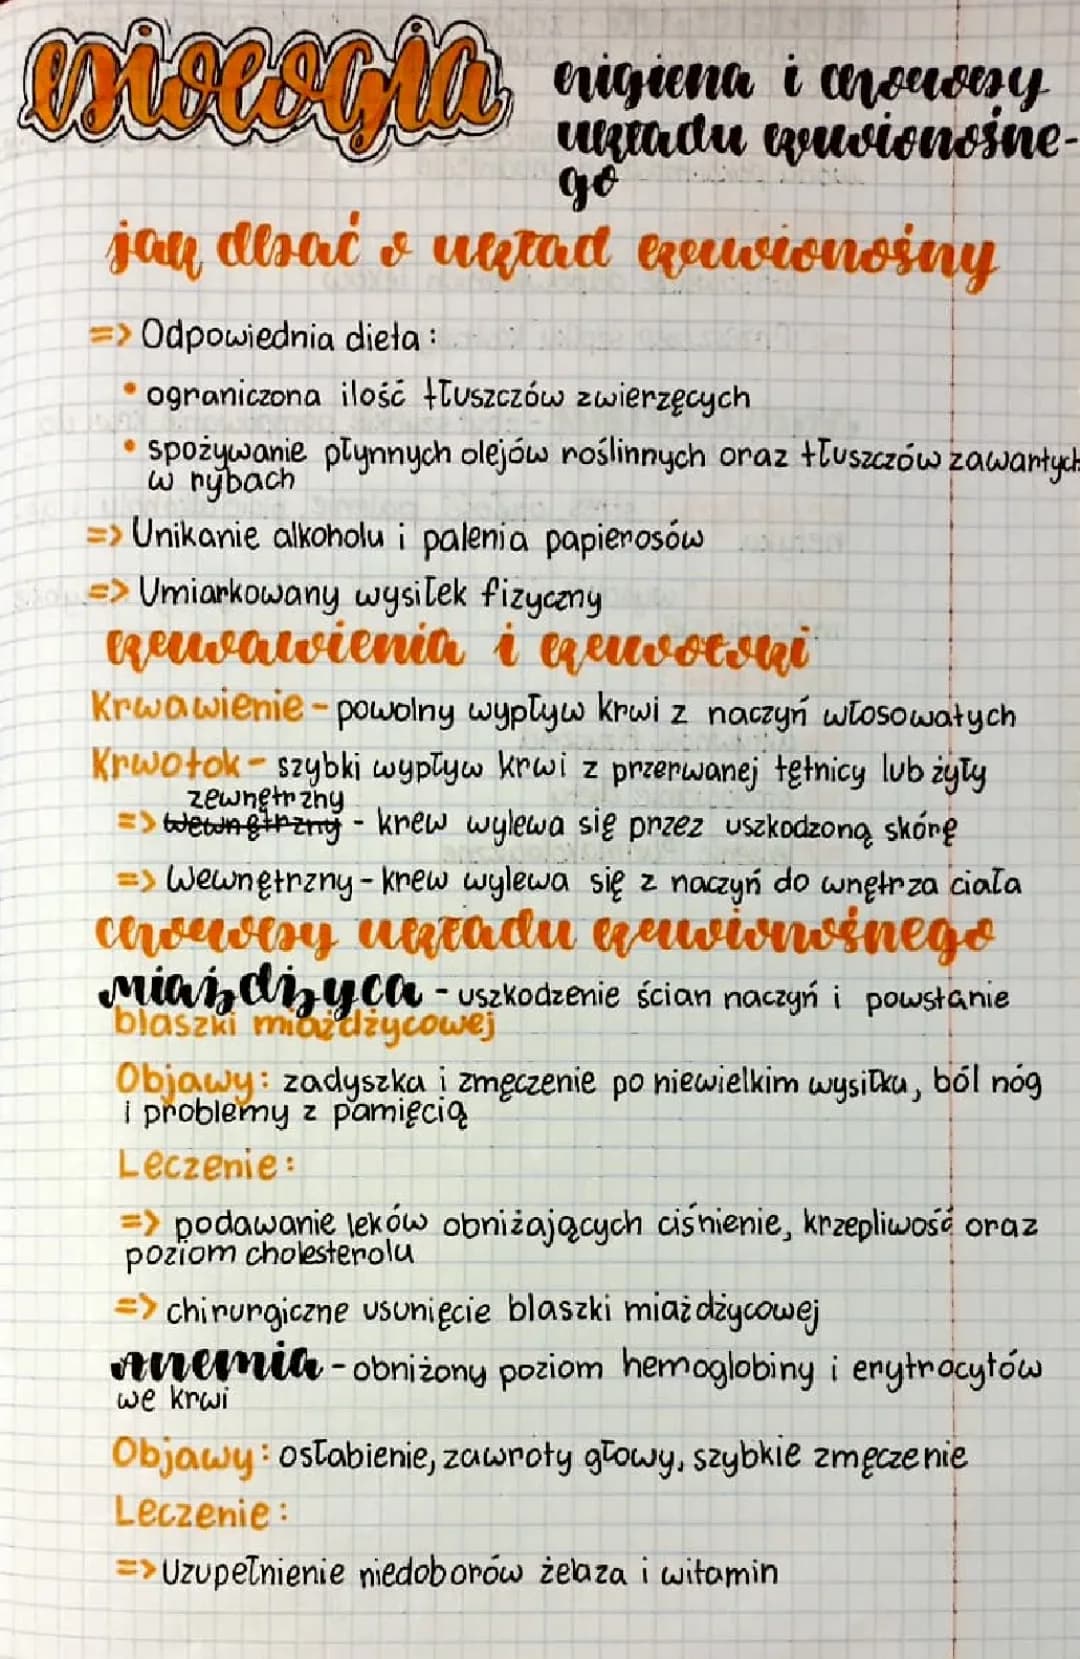 Biologia
Higiena i choroby
układu krwionośne-
go
jak dbać o układ krwionośny
=> Odpowiednia dieta:
• ograniczona ilość tłuszczów zwierzęcych
• spożywanie płynnych olejów roślinnych oraz tłuszczów zawartych
w rybach
=> Unikanie alkoholu i palenia papierosów
=> Umiarkowany wysiłek fizyczny
krwawienia i krwotoki
Krwawienie - powolny wypływ krwi z naczyń włosowatych
Krwotok - szybki wypływ krwi z przerwanej tętnicy lub żyły
zewnętrzny
=> wewnętrzny - krew wylewa się przez uszkodzoną skórę
=> Wewnętrzny - krew wylewa się z naczyń do wnętrza ciała
choroby układu krwionośnego
Miażdżyca - uszkodzenie ścian naczyń i powstanie
blaszki miażdżycowej
Objawy: zadyszka i zmęczenie po niewielkim wysiłku, ból nóg
i problemy z pamięcią
Leczenie:
=> podawanie leków obniżających ciśnienie, krzepliwość oraz
poziom cholesterolu
=> chirurgiczne usunięcie blaszki miażdżycowej
Anemia - obniżony poziom hemoglobiny i erytrocytów
we krwi
Objawy: osłabienie, zawroty głowy, szybkie zmęczenie
Leczenie:
=> Uzupełnienie niedoborów żelaza i witamin